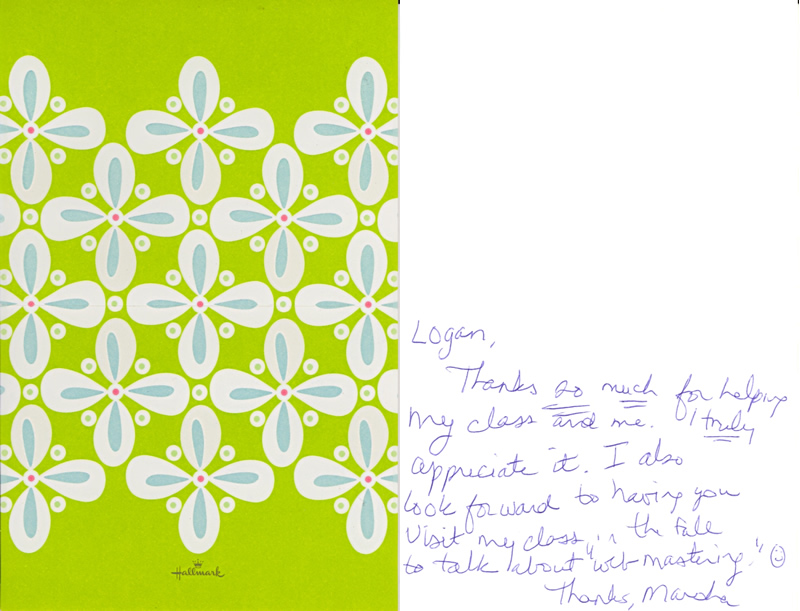 Hallmark
Logan,
Thanks so much for helping
my class and me. I truly
appreciate it. I also
look forward to having you
visit my class in the fall
to talk about "web mastering." ☺
Thanks, Marsha